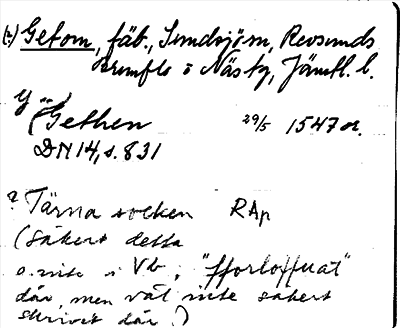 (?) Getom, fäb., Sundsjö sn, Revsunds
Brunflo o Näs tg, Jämtl. l.
Gethen 29/5 1547 or.
DN 14, s. 831
? Tärna socken RAp
(säkert detta
o. inte i Vb, "fforloffuat"
där, men väl inte säkert
skrivit där.)